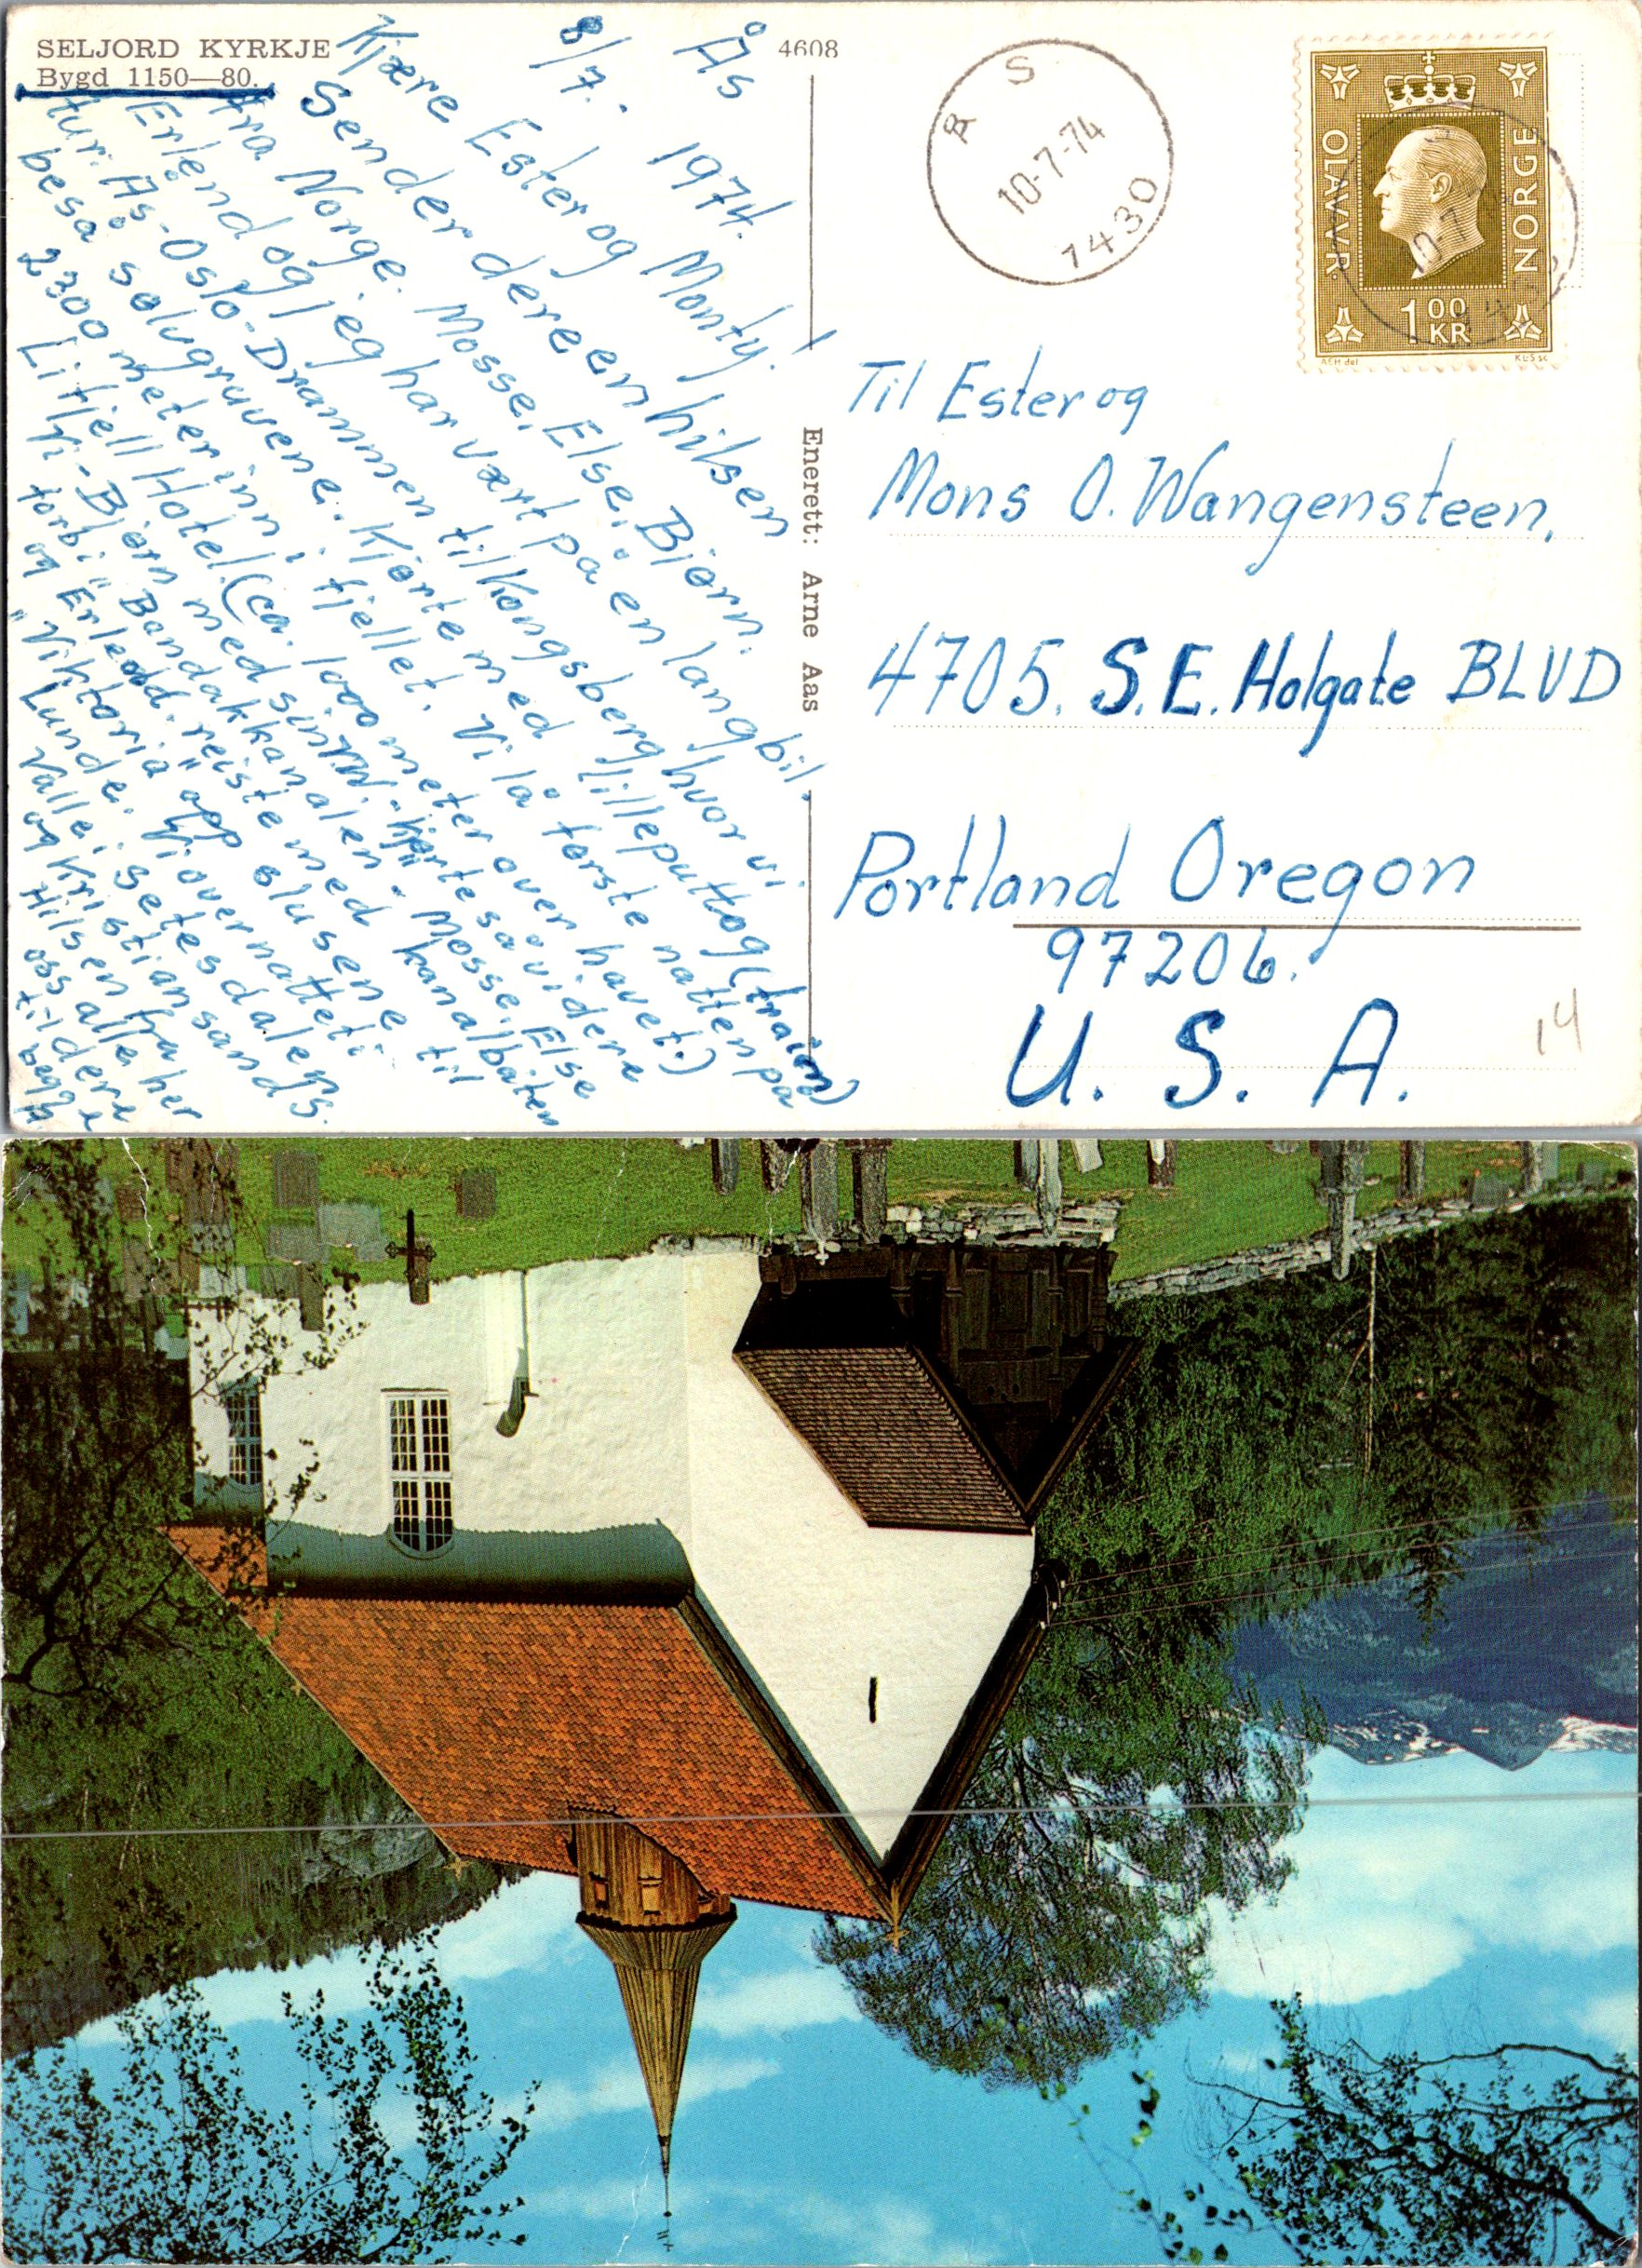 SELJORD KYRKJE
Bygd 1150—80.
4608
Ås
8/7. 1974.
Kjære Ester og Monty!
Sender dere en hilsen
fra Norge. Mosse, Else, Bjørn.
Erlend og jeg har vært på en lang bil,
tur. Ås-Oslo-Drammen til Kongsberg hvor vi
beså sølvgruvene. Kjørte med lilleputtog (train)
2300 meter inn i fjellet. Vi lå første natten på
Lifjell Hotel. (ca. 1000 meter over havet.)
Vi - Bjørn med sin VW. kjørte så videre
forbi "Bandakkanalen". Mosse, Else
og Erlend. reiste med kanalbåten
"Viktoria" opp slusene til
Lunde. Vi overnattet i
Valle i Setesdalen
og Kristiansand S.
Hilsen fra
oss alle her
til dere
begge.
Enerett: Arne Aas
ÅS
10-7-74
1430
OLAV.R.
NORGE
1 00 KR
Til Ester og
Mons O. Wangensteen,
4705. S.E. Holgate BLVD
Portland Oregon
97206.
U. S. A.
14